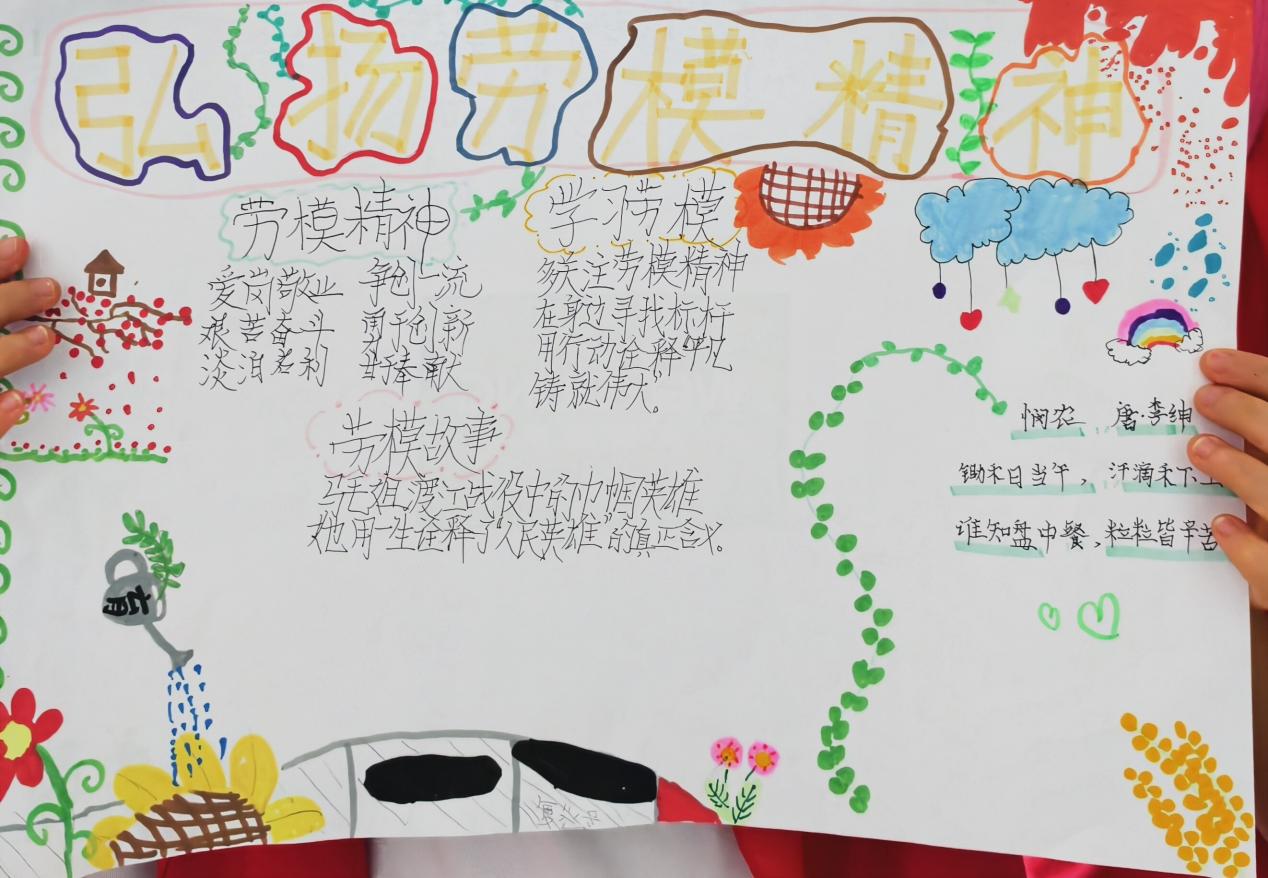 弘扬劳模精神
劳模精神
爱岗敬业 争创一流
艰苦奋斗 勇于创新
淡泊名利 甘于奉献
学习劳模
多关注劳模精神
在身边寻找标杆
用行动诠释“平凡
铸就伟大”。
劳模故事
马毛姐渡江战役中的巾帼英雄
她用一生诠释了“人民英雄”的真正含义。
悯农 唐·李绅
锄禾日当午，汗滴禾下土
谁知盘中餐，粒粒皆辛苦
复兴号